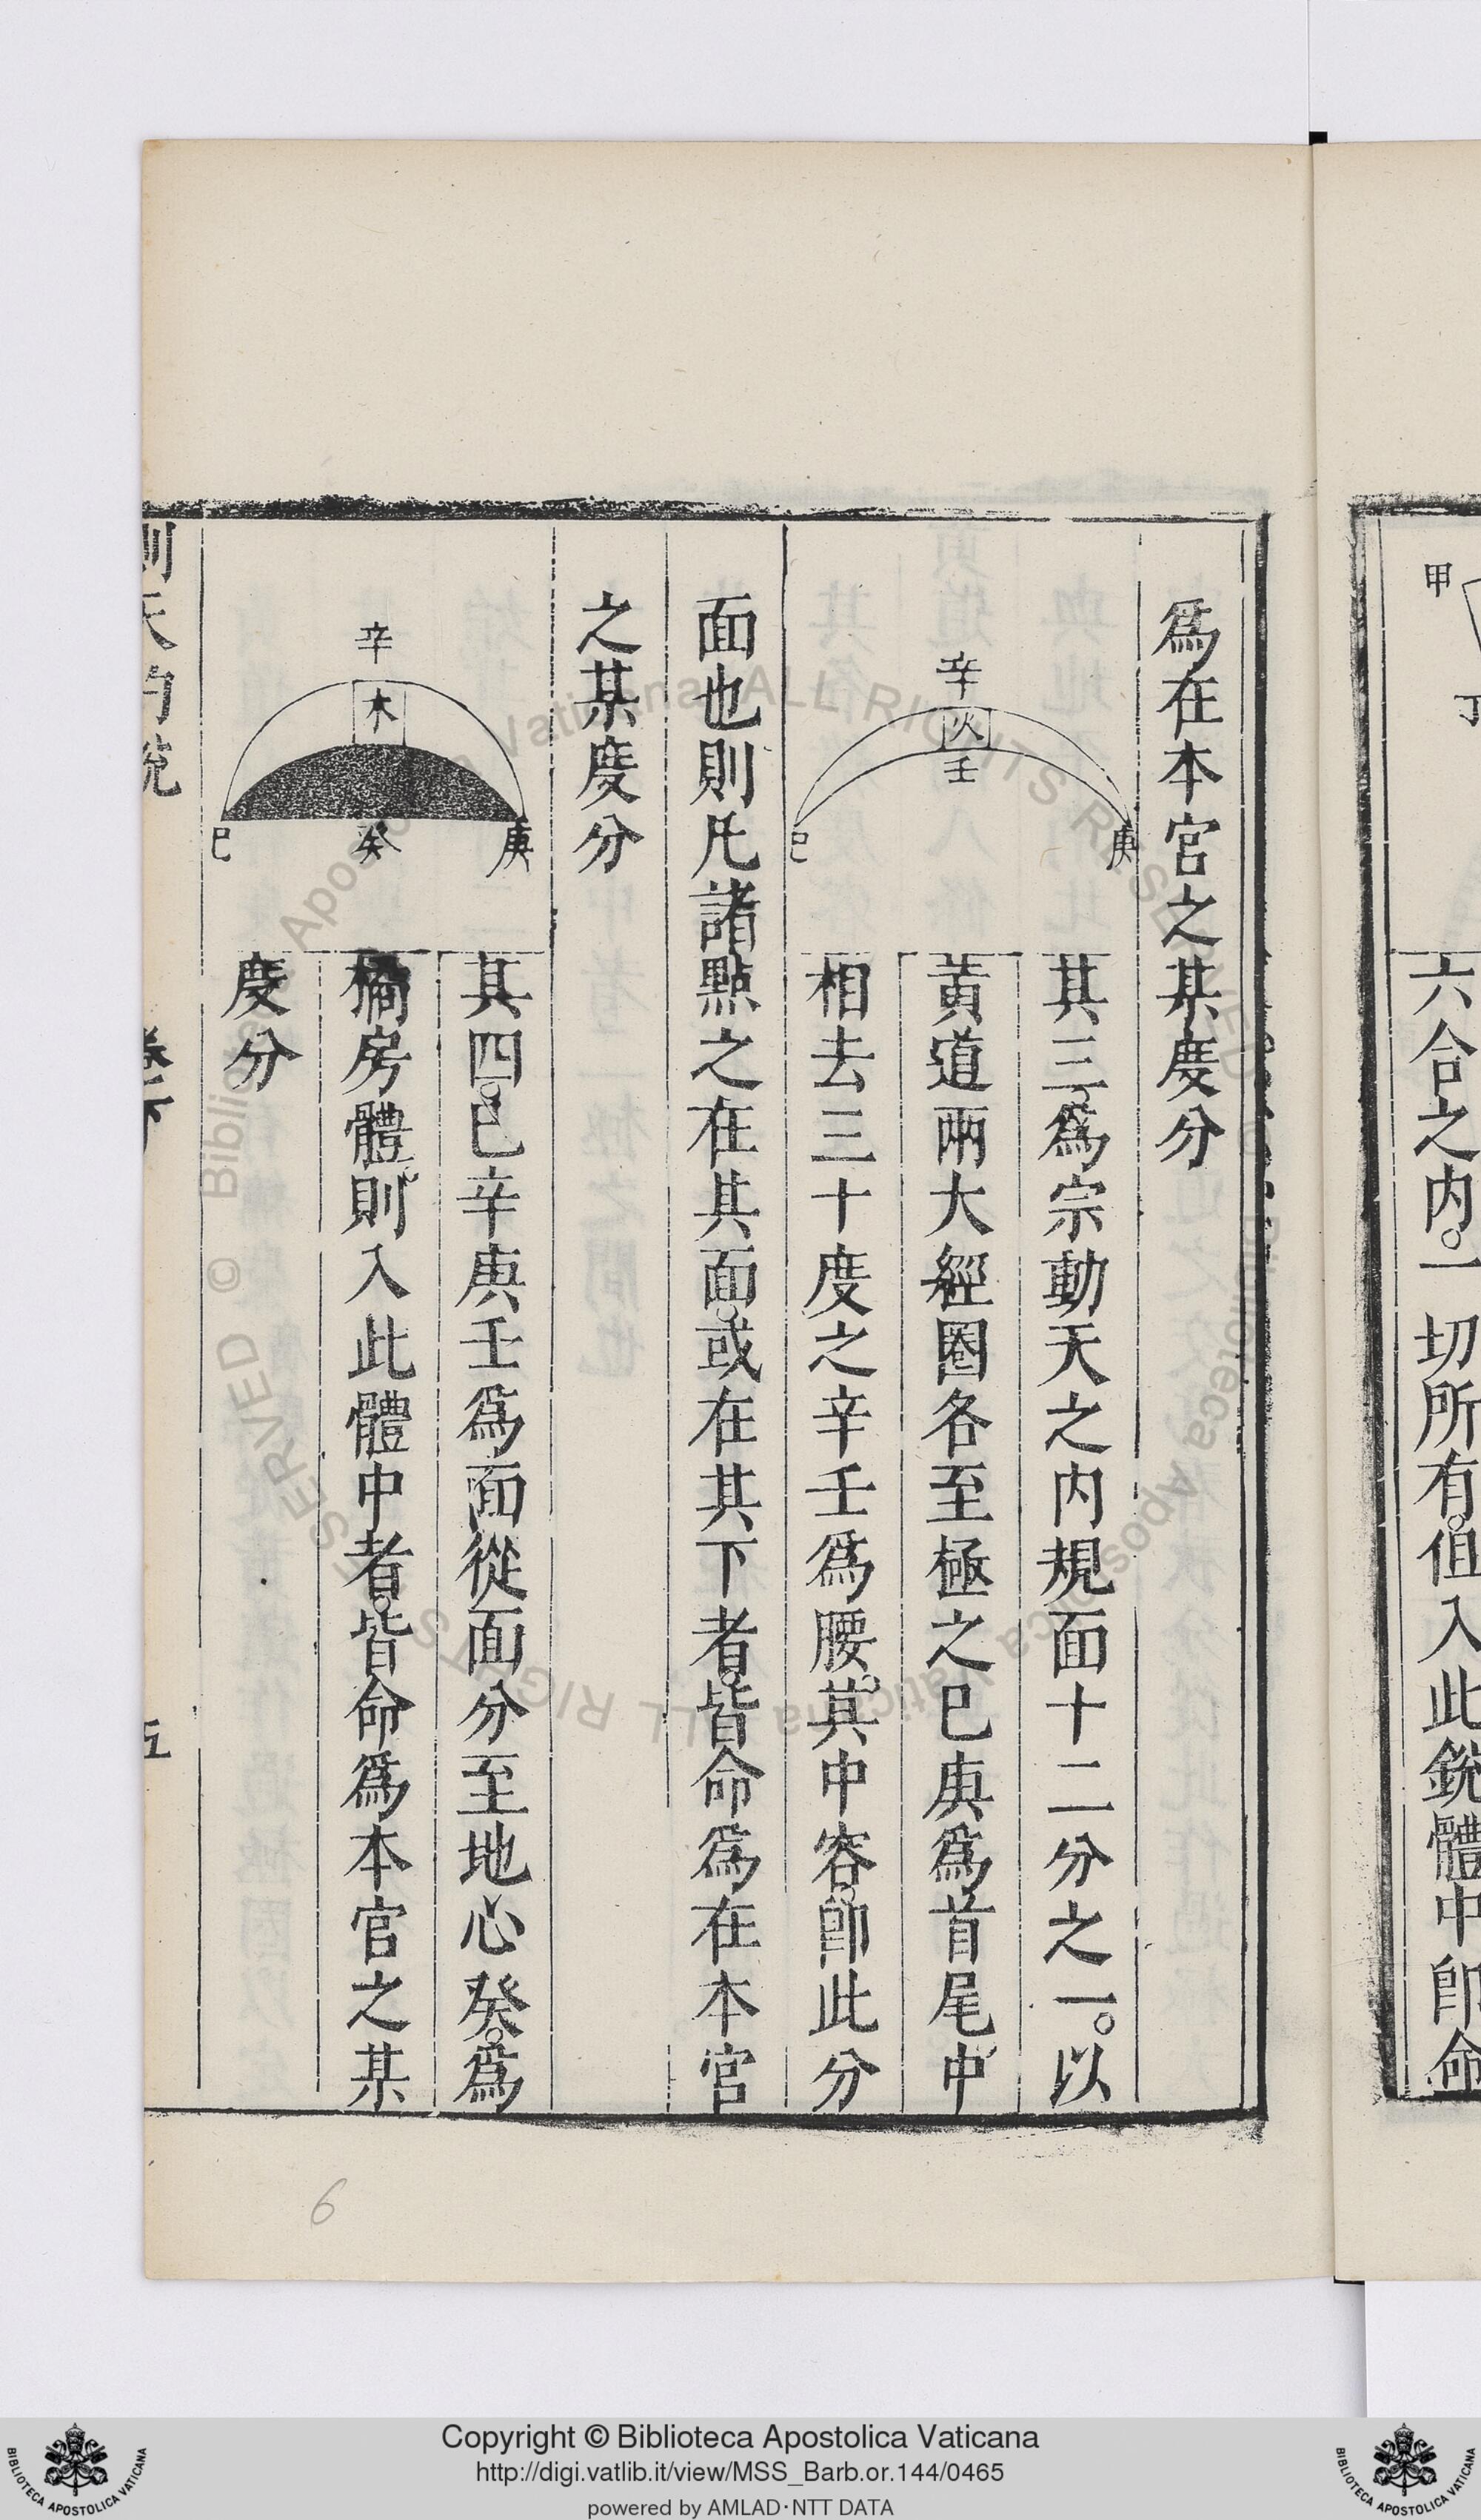 甲
丁
六合之內。一切所有。值入此銳體中。即命
為在本宮之某度分
辛
火
壬
己
庚
其三。為宗動天之內規面十二分之一。以
黃道兩大經圈各至極之巳庚為首尾。中
相去三十度之辛壬為腰。其中容。即此分
面也。則凡諸點之在其面。或在其下者。皆命為在本宮
之某度分
辛
木
己
癸
庚
其四。巳辛庚壬為面。從面分至地心癸。為
橘房體。則入此體中者。皆命為本宮之某
度分
測天約說
卷下
五
6
Copyright © Biblioteca Apostolica Vaticana
http://digi.vatlib.it/view/MSS_Barb.or.144/0465
powered by AMLAD·NTT DATA
BIBLIOTECA APOSTOLICA VATICANA
BIBLIOTECA APOSTOLICA VATICANA